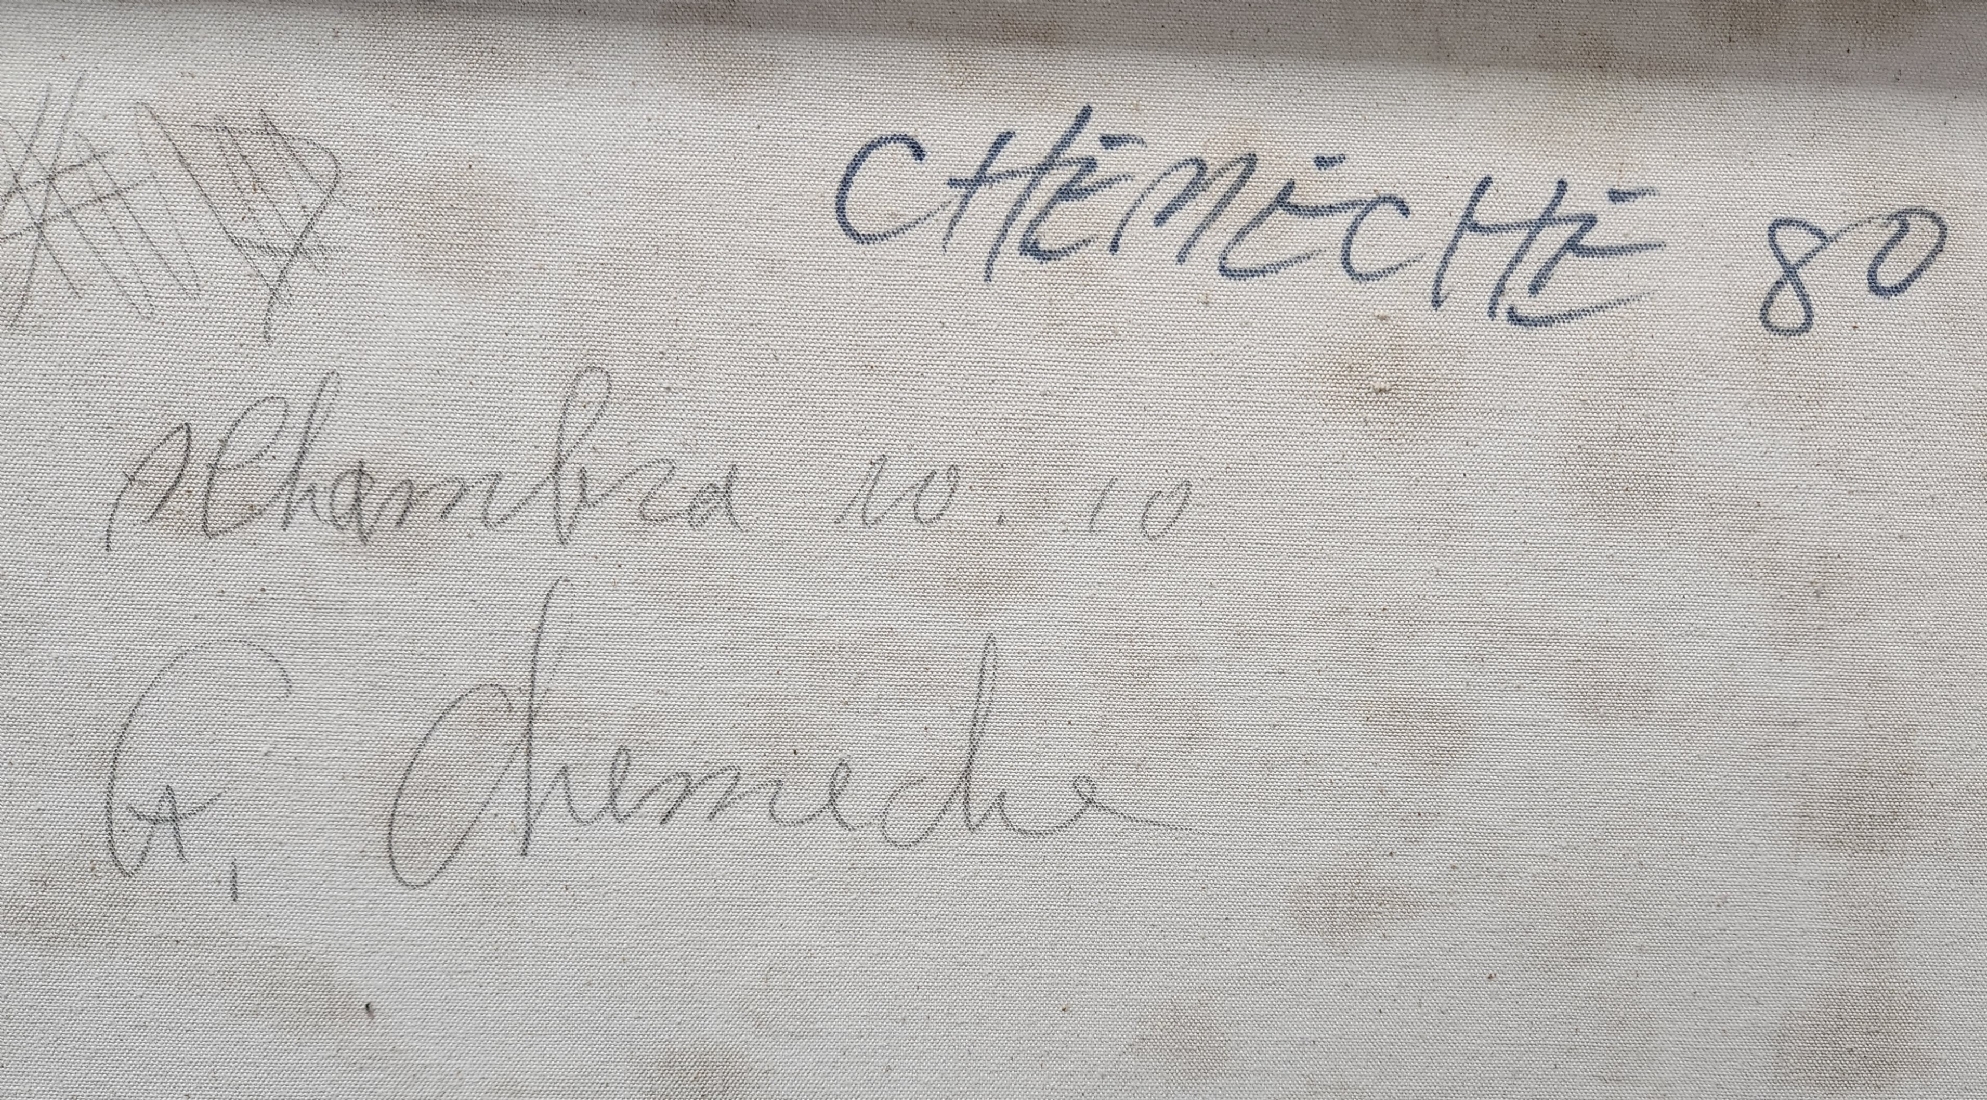 CHEMECHE 80
Alhambra 20. 10
G. Chemeche